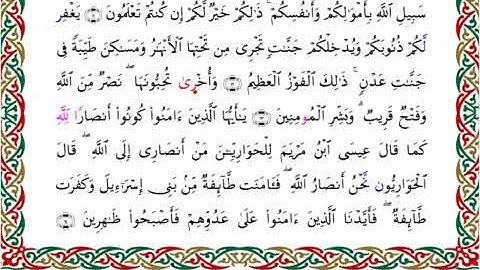 سَبِيلِ اللَّهِ بِأَمْوَالِكُمْ وَأَنفُسِكُمْ ۚ ذَٰلِكُمْ خَيْرٌ لَّكُمْ إِن كُنتُمْ تَعْلَمُونَ ۝ يَغْفِرْ
لَكُمْ ذُنُوبَكُمْ وَيُدْخِلْكُمْ جَنَّٰتٍ تَجْرِى مِن تَحْتِهَا الْأَنْهَٰرُ وَمَسَٰكِنَ طَيِّبَةً فِى
جَنَّٰتِ عَدْنٍ ۚ ذَٰلِكَ الْفَوْزُ الْعَظِيمُ ۝ وَأُخْرَىٰ تُحِبُّونَهَا ۖ نَصْرٌ مِّنَ اللَّهِ
وَفَتْحٌ قَرِيبٌ ۗ وَبَشِّرِ الْمُومِنِينَ ۝ يَٰأَيُّهَا الَّذِينَ ءَامَنُوا كُونُوا أَنصَارًا لِلَّهِ
كَمَا قَالَ عِيسَى ابْنُ مَرْيَمَ لِلْحَوَارِيِّينَ مَنْ أَنصَارِى إِلَى اللَّهِ ۖ قَالَ
الْحَوَارِيُّونَ نَحْنُ أَنصَارُ اللَّهِ ۖ فَـَٔامَنَت طَّآئِفَةٌ مِّن بَنِى إِسْرَٰٓءِيلَ وَكَفَرَت
طَّآئِفَةٌ ۖ فَأَيَّدْنَا الَّذِينَ ءَامَنُوا عَلَىٰ عَدُوِّهِمْ فَأَصْبَحُوا ظَٰهِرِينَ ۝